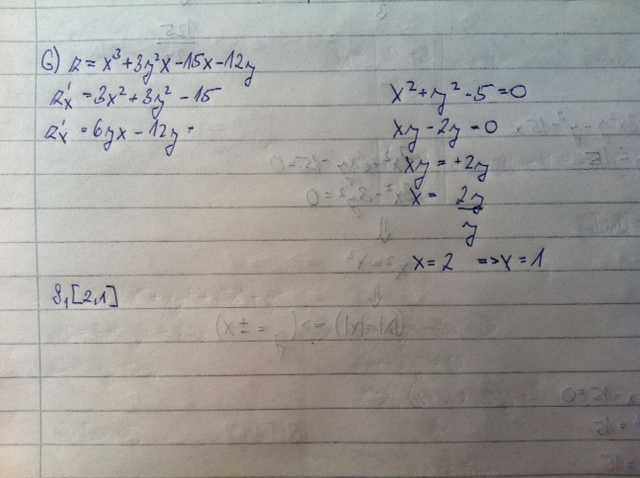 6) z = x³+3y²x-15x-12y
z'x = 3x²+3y²-15
z'x = 6yx-12y=
x²+y²-5=0
xy-2y=0
xy=+2y
x= 2y
y
x=2 =>y=1
S₁[2,1]